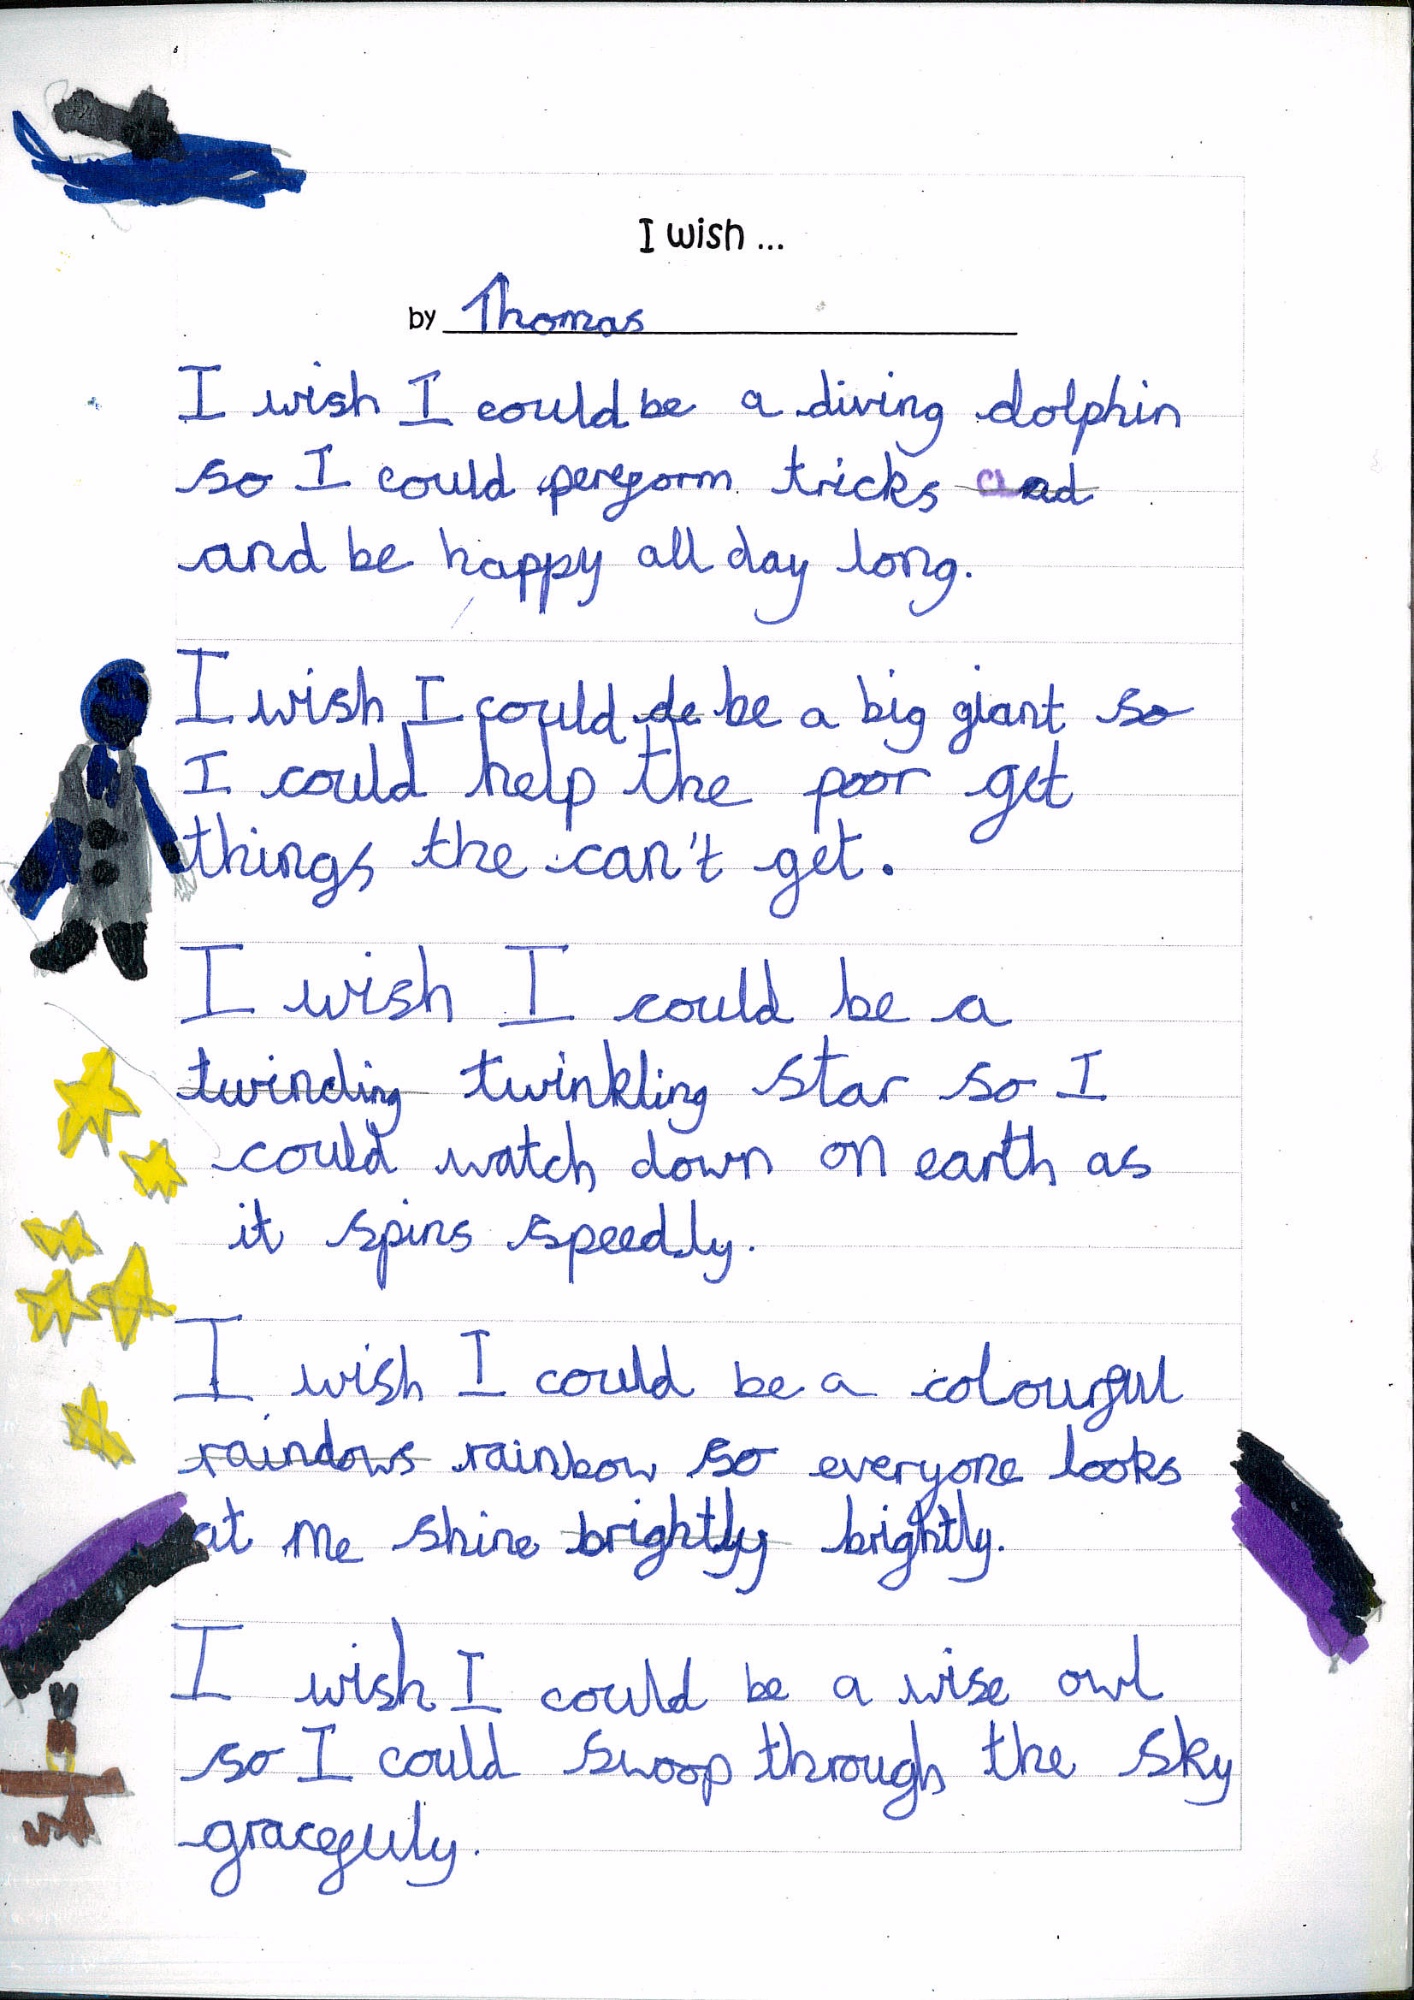 I wish ...
by Thomas
I wish I could be a diving dolphin
so I could pereform tricks ad
and be happy all day long.
I wish I could de be a big giant so
I could help the poor get
things the can't get.
I wish I could be a
twinding twinkling star so I
could watch down on earth as
it spins speedly.
I wish I could be a colourful
raindows rainbow so everyone looks
at me shine brightly brightly.
I wish I could be a wise owl
so I could swoop through the sky
gracefuly.